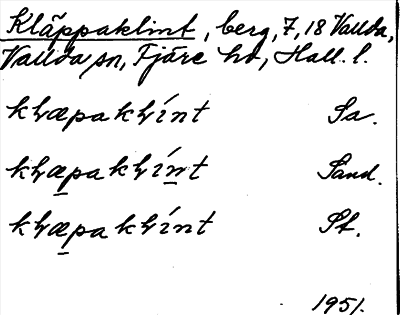 Kläppaklint, berg, 7, 18 Vallda,
Vallda sn, Fjäre hd, Hall. l.
kⱶæpakⱶínt Sa.
kⱶæ̠pakⱶín̠t Sand.
kⱶæ̠pakⱶínt St.
1951.